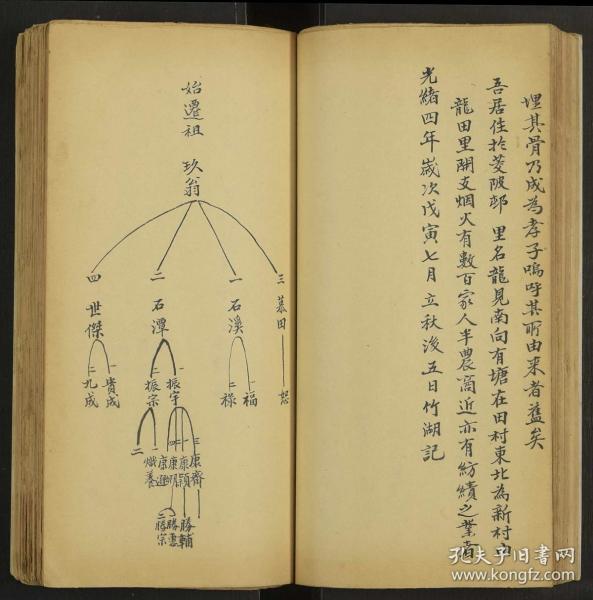 埋其骨乃成為孝子嗚呼其所由来者蓋矣
吾居住於菱陂邨 里名龍見南向有塘在田村東北為新村
龍田里開支烟火有數百家人半農商近亦有紡績之業者
光緒四年歲次戊寅七月立秋後五日竹湖記
始遷祖 玖翁
三 慕田 恕
一 石溪
一 福
二 祿
二 石潭
一 振宇
二 振宗
四 世傑
一 貴成
二 九成
三 康齊
二 康顕
一 熾養
二
勝輔
二 勝宗
孔夫子旧书网
www.kongfz.com